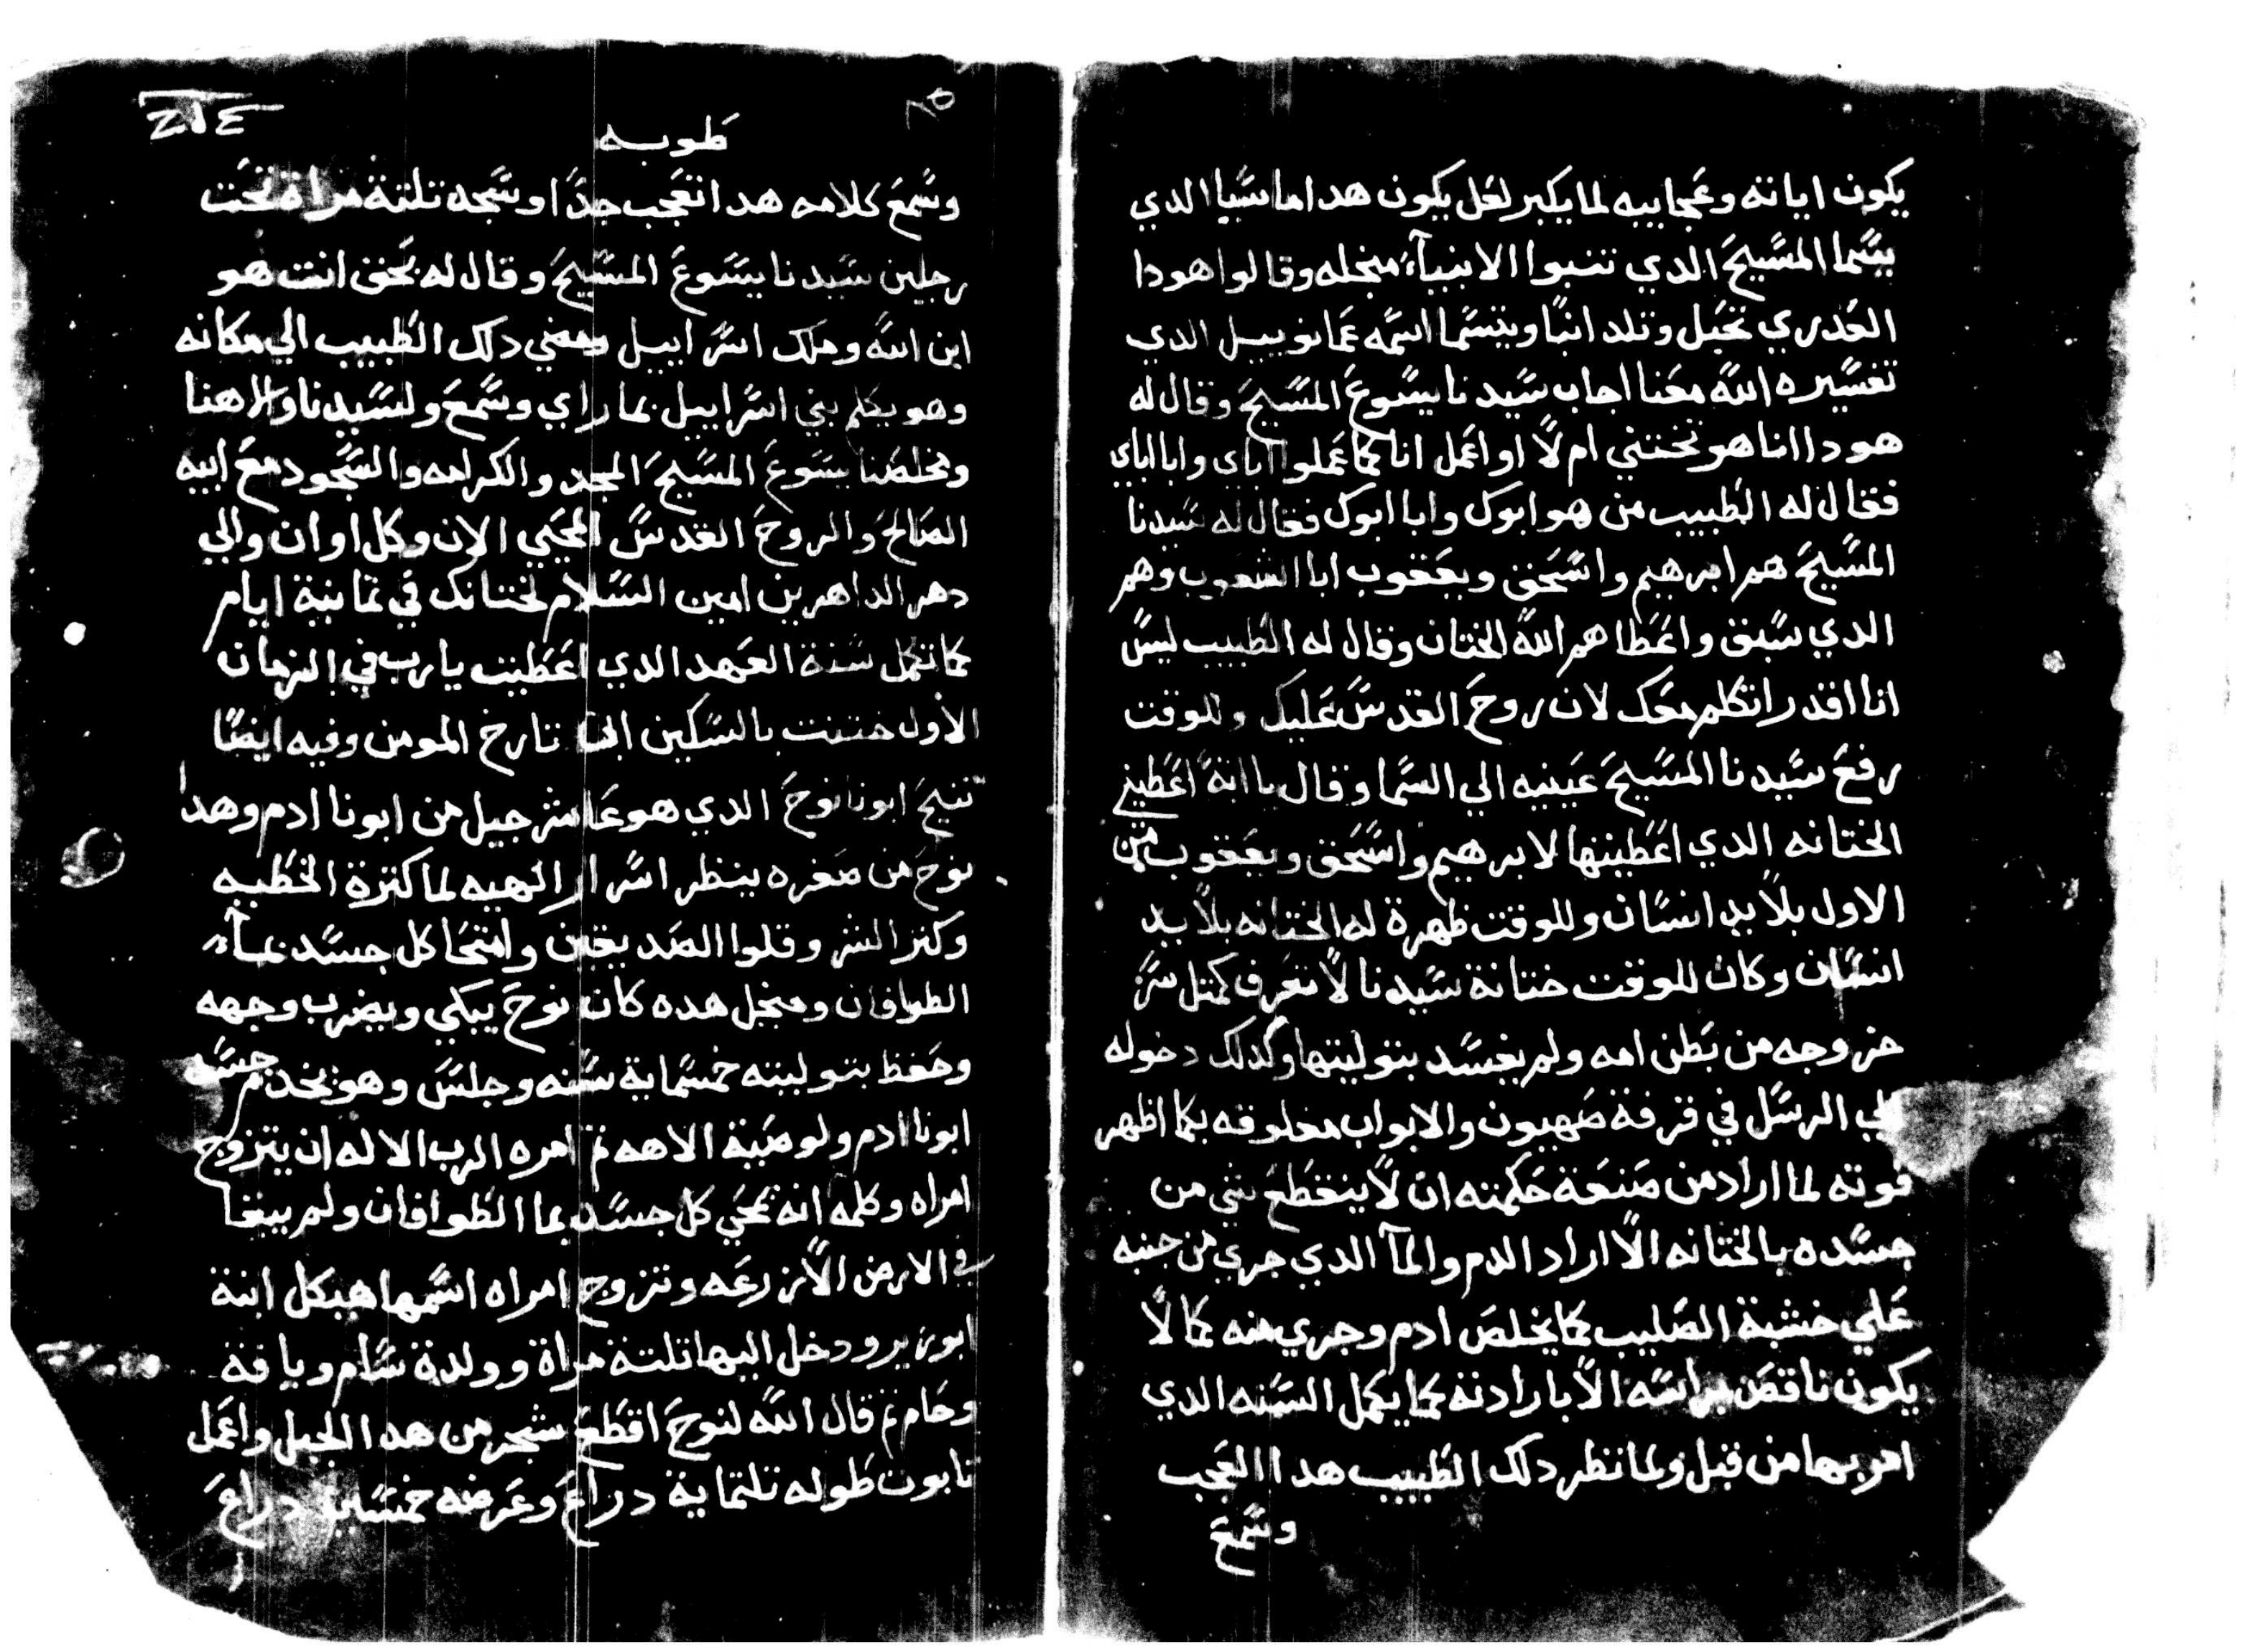 يكون اياته وعجاييه لما يكبر لعل يكون هدا ماسيا الدي
يسما المسيح الدي تنبوا الانبيآء منجله وقالوا هودا
العدري تحبل وتلد ابنا ويتسما اسمه عمانوييل الدي
تفسيره الله معنا اجاب سيدنا يسوع المسيح وقال له
هودا انا هو تختني ام لا او اعمل انا كما عملوا اباي وابا اباي
فقال له الطبيب من هو ابوك وابا ابوك فقال له سيدنا
المسيح هم ابرهيم واسحق ويعقوب ابا الشعوب وهم
الدي سبق واعطاهم الله الختان وقال له الطبيب ليس
انا اقدر اتكلم معك لان روح القدس عليك وللوقت
رفع سيدنا المسيح عينيه الي السما وقال يا ابة اعطيني
الختانه الدي اعطيتها لابرهيم واسحق ويعقوب من
الاول بلا يد انسان وللوقت ظهرة له الختانه بلا يد
انسان وكان للوقت ختانة سيدنا لا تعرف كمتل سر
خروجه من بطن امه ولم يفسد بتوليتها وكدلك دخوله
الي الرسل في قرفة صهيون والابواب مغلوقه بكما اظهر
قوته لما اراد من صنعة حكمته ان لا ينقطع شي من
جسده بالختانه الا اراد الدم والمآ الدي جري من جنبه
علي خشبة الصليب كما يخلص ادم وجري منه كما لا
يكون ناقص براسه الا بارادته كما يكمل السنه الدي
امر بها من قبل ولما نظر دلك الطبيب هدا العجب
وسمع
٨٥
طوبه
وسمع كلامه هدا تعجب جدا وسجد تلتة مراة تحت
رجلين سيدنا يسوع المسيح وقال له بحق انت هو
ابن الله وملك اسراييل ومضي دلك الطبيب الي مكانه
وهو يكلم بني اسراييل بما راي وسمع ولسيدنا والاهنا
ومخلصنا يسوع المسيح المجد والكرامه والسجود مع ابيه
الصالح والروح القدس المحيي الان وكل اوان والي
دهر الداهرين امين السلام لختانك في تمانية ايام
كما تكمل سنة العهد الدي اعطيت يارب في الزمان
الاول ختنت بالسكين تارخ المومن وفيه ايضا
تنيح ابونا نوح الدي هو عاشر جيل من ابونا ادم وهدا
نوح من صغره ينظر اسرار الهيه لما كترة الخطيه
وكتر الشر وقلوا الصديقين وامتحا كل جسد بمآء
الطوافان ومنجل هده كان نوح يبكي ويضرب وجهه
وحفظ بتوليته خمسماية سنه وجلس وهو يخدم جسد
ابونا ادم ولوصية الاهه تم امره الرب الاله ان يتزوج
امراه وكلمه انه يمحي كل جسد بما الطوافان ولم يبقا
في الارض الا زرعه وتزوج امراه اسمها هيكل ابنة
ابوزير ودخل اليها تلتة مراة وولدة سام ويافة
وحام تم قال الله لنوح اقطع شجر من هدا الجبل واعمل
تابوت طوله تلتماية دراع وعرضه خمسين دراع